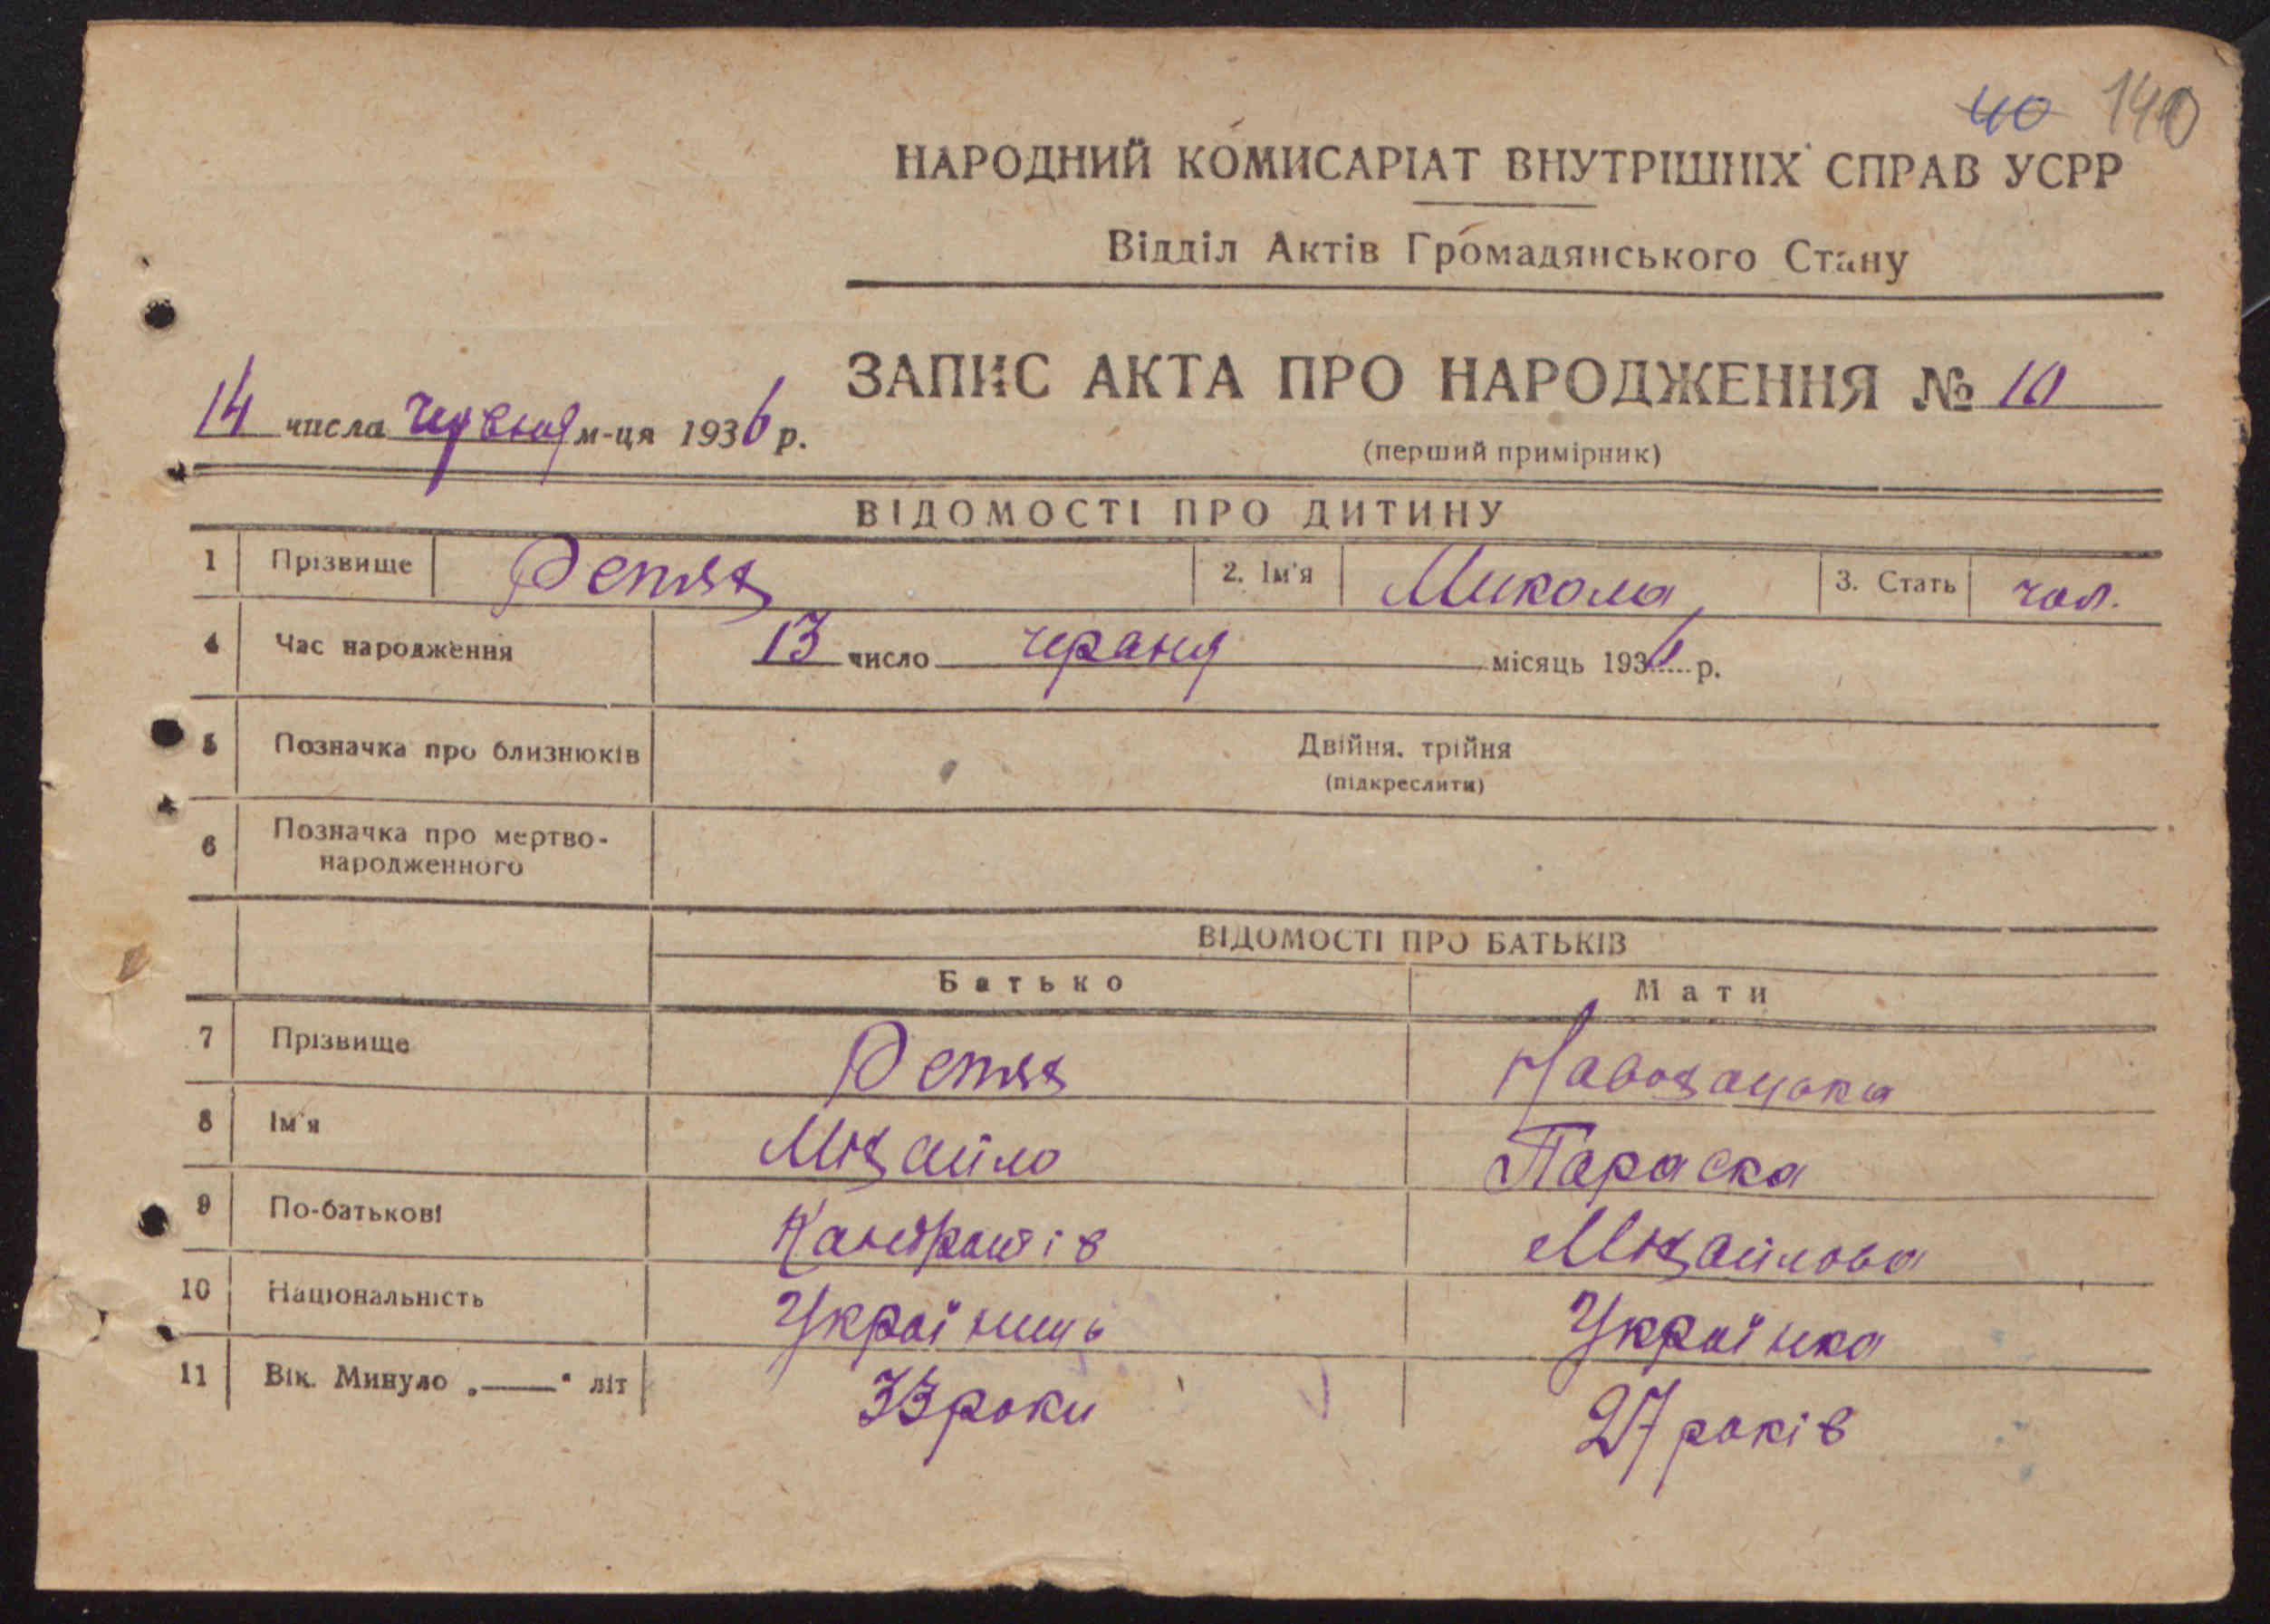 40 140
НАРОДНИЙ КОМИСАРІАТ ВНУТРІШНІХ СПРАВ УСРР
Відділ Актів Громадянського Стану
ЗАПИС АКТА ПРО НАРОДЖЕННЯ № 10
14 числа червня м-ця 1936 р.
(перший примірник)
ВІДОМОСТІ ПРО ДИТИНУ
1 Прізвище 2. Ім'я Микола 3. Стать чол.
4 Час народження 13 число червня місяць 1936 р.
5 Позначка про близнюків Двійня, трійня
(підкреслити)
6 Позначка про мертво-
народженного
ВІДОМОСТІ ПРО БАТЬКІВ
Батько Мати
7 Прізвище
8 Ім'я Міхайло Параска
9 По-батькові Кандратів Міхайлова
10 Національність Українець Українка
11 Вік. Минуло „——“ літ 33 роки 27 років